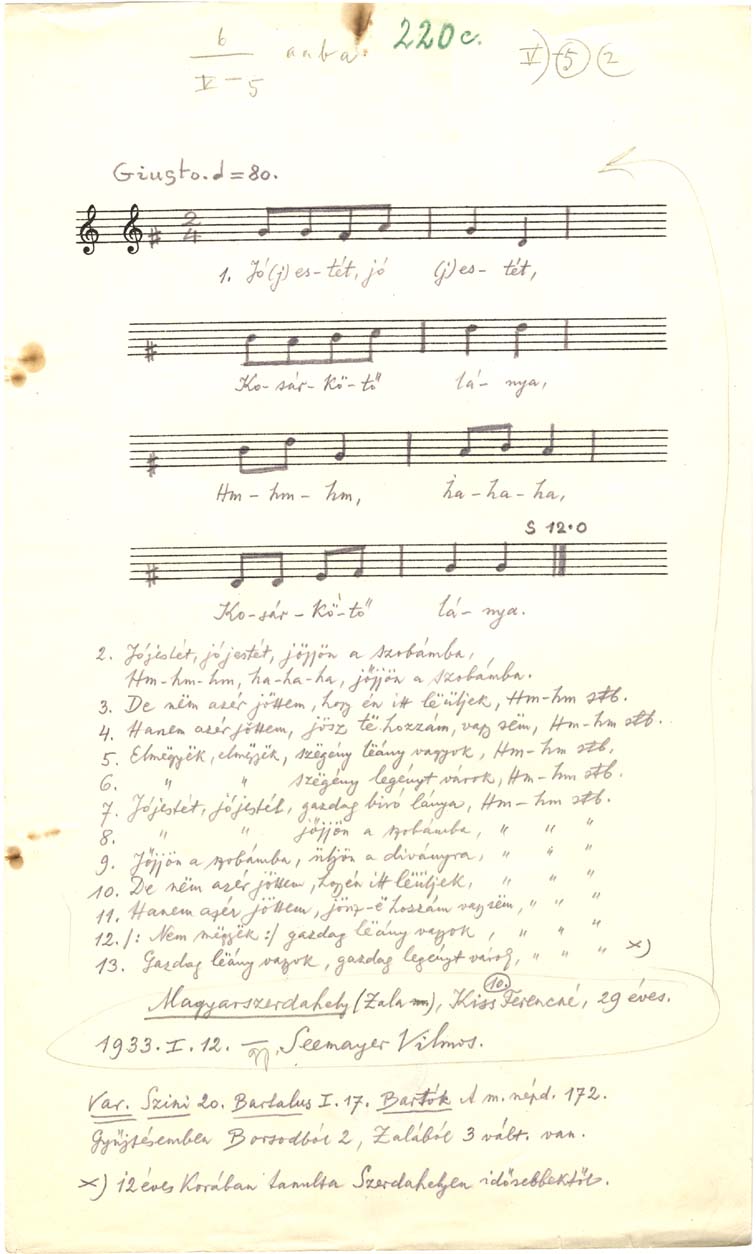 6 aaba. 220c. V) -5 2
V - 5
Giusto. d = 80.
2
4
1. Jó(j)es-tét, jó (j)es- tét,
Ko-sár-kö-tő lá- nya,
Hm-hm-hm, ha-ha-ha,
S 12.0
Ko-sár-kö-tő lá- nya.
2. Jójestét, jójestét, jőjjön a szobámba,
Hm-hm-hm, ha-ha-ha, jőjjön a szobámba.
3. De nëm azér jöttem, hogy én itt lëüljek, Hm-hm stb.
4. Hanem azér jöttem, jösz të hozzám, vagy sëm, Hm-hm stb.
5. Elmëgyëk, elmëgyëk, szëgény lëány vagyok, Hm-hm stb.
6. " " szëgény legényt várok, Hm-hm stb.
7. Jójestét, jójestét, gazdag biró lánya, Hm-hm stb.
8. " " jőjjön a szobámba, " " "
9. Jőjjön a szobámba, üljön a diványra, " " "
10. De nëm azér jöttem, hogyén itt lëüljek, " " "
11. Hanem azér jöttem, jösz-ë hozzám vagy sëm, " " "
12. /: Nem mëgyëk :/ gazdag lëány vagyok, " " "
13. Gazdag lëány vagyok, gazdag legényt várok, " " " x)
Magyarszerdahely (Zala m), Kiss Ferencné, 29 éves.
10.
1933. I. 12. – gy. Seemayer Vilmos.
Var. Szini 20. Bartalus I. 17. Bartók A m. népd. 172.
Gyüjtésemben Borsodból 2, Zalából 3 vált. van.
x) 12 éves korában tanulta Szerdahelyen idősebbektől.